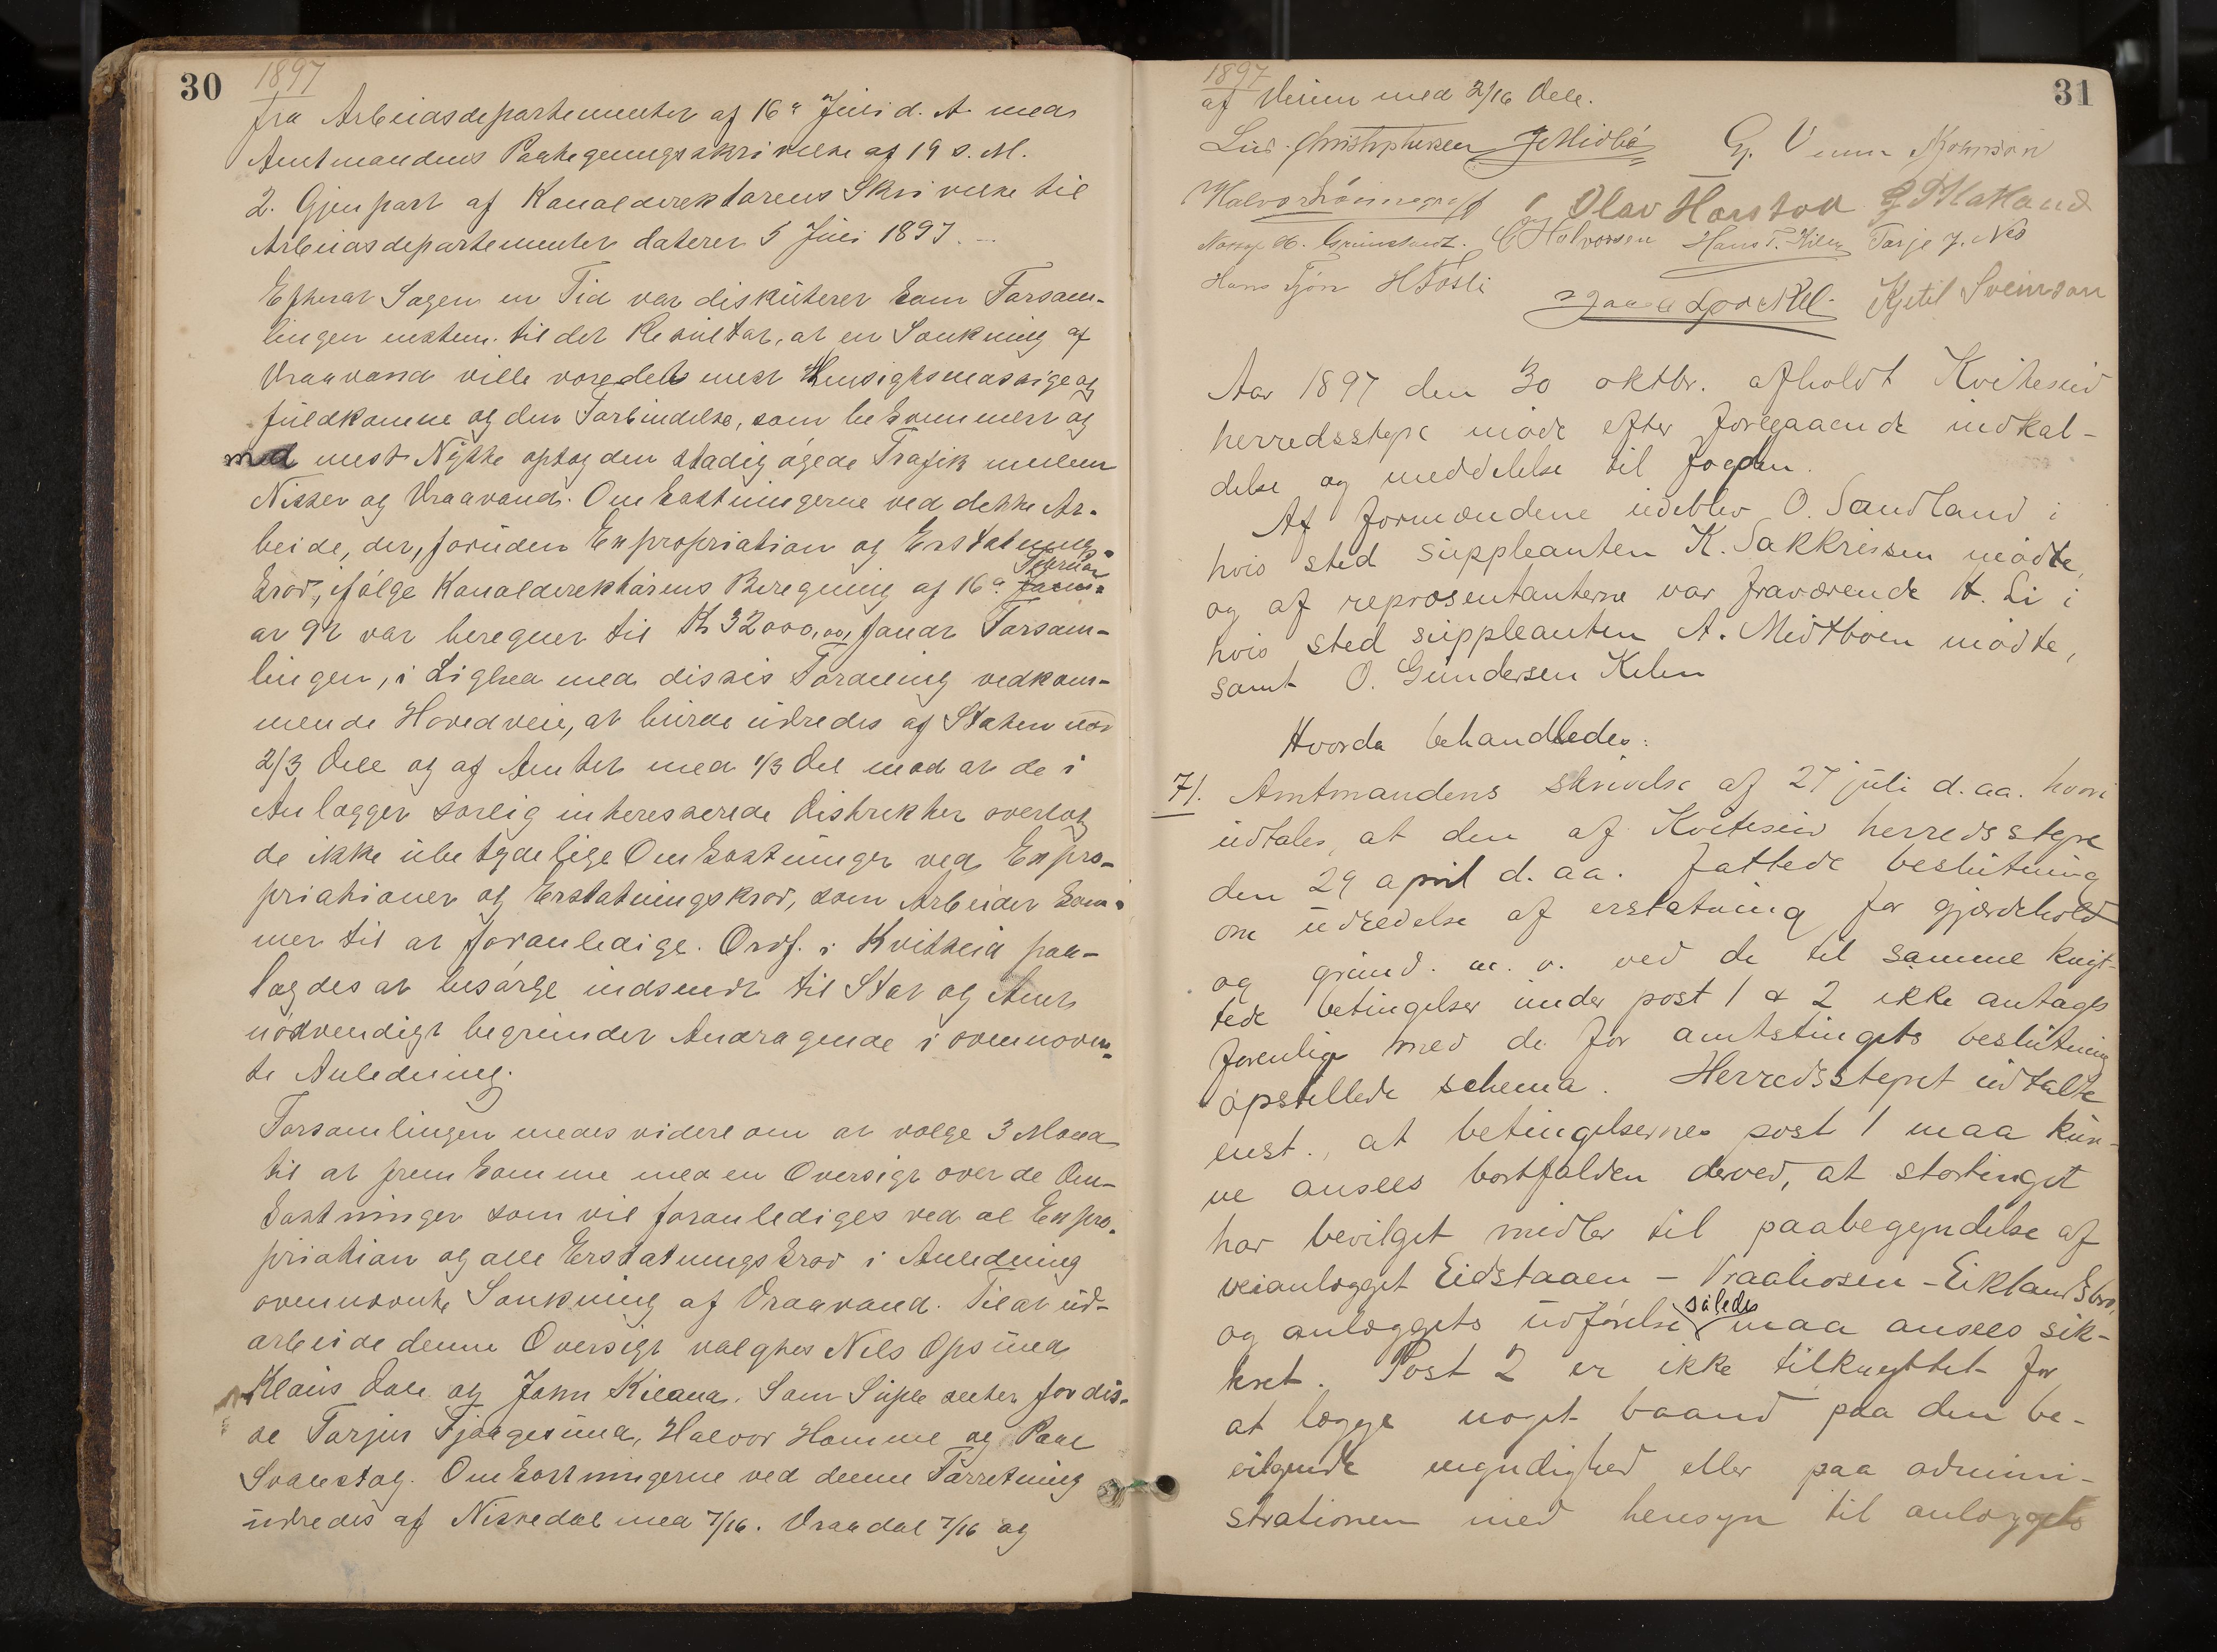 30
1897
fra Arbeidsdepartementet af 16de Juli d. A. med
Amtmandens Paategningsskrivelse af 19 s. M.
2. Gjenpart af Kanaldirektørens Skrivelse til
Arbeidsdepartementet dateret 5 Juli 1897. –
Efterat Sagen en Tid var diskuteret kom Forsam-
lingen enstem. til det Resultat, at en Sænkning af
Vraavand ville væredels mest Hensigtsmæssige og
fuldkomne og den Forbindelse, som bekvemmest og
med mest Nytte optog den stadig øgede Trafik mellem
Nisser og Vraavand. Omkostningerne ved dette Ar-
beide, der, foruden Expropriation og Erstatnings-
krav, ifølge Kanaldirektørens Beregning af 16de Februar
ar 92 var beregnet til Kr 32000,00, fandt Forsam-
lingen, i Lighed med disses Fordeling vedkom-
mende Hovedveie, at burde udredes af Staten med
2/3 Dele og af Amtet med 1/3 Del mod at de i
Anlægget særlig interesserede Distrikter overtog
de ikke ubetydelige Omkostninger ved Expro-
priationer og Erstatningskrav, som Arbeidet kom-
mer til at foranledige. Ordf. i Kviteseid paa-
lagdes at besørge indsendt til Stat og Amt
nødvendigt begrundet Andragende i ovennævn-
te Anledning.
Forsamlingen enedes videre om at vælge 3 Mænd
til at fremkomme med en Oversigt over de Om-
kostninger som vil foranlediges ved al Expro-
priation og alle Erstatningskrav i Anledning
ovennævnte Sænkning af Vraavand. Til at ud-
arbeide denne Oversigt valgtes Nils Opsund
Klaus Dale og John Kileand. Som Suple anter for dis-
se Tarjus Fjaagesund, Halvor Homme og Paal
Svalestog. Omkostningerne ved denne Forretning
udredes af Nissedal med 7/16. Vraadal 7/16 og
31
1897
af Veum med 2/16 Dele.
Lud. Christophersen J Midbø G. Veum
Olav Hanstad
C Halvorsen Hans T. Kilen Tarje J. Nes
Hans Tjøn H Fosli Kjetil Sveinson
Aar 1897 den 30 oktbr. afholdt Kviteseid
herredsstyre møde efter foregaaende indkal-
delse og meddelelse til fogden.
Af formændene udeblev O. Sandland i
hvis sted suppleanten K. Sakkrissen mødte,
og af repræsentanterne var fraværende H. Li i
hvis sted suppleanten A. Midtbøen mødte,
samt O. Gundersen Kilen
Hvorda behandledes:
71. Amtmandens skrivelse af 27 juli d. aa. hvori
udtales, at den af Kviteseid herredsstyre
den 29 april d. aa. fattede beslutning
om udredelse af erstatning for gjærdehold
og grund. m. v. ved de til samme knyt-
tede betingelser under post 1 & 2 ikke antages
forenlig med de for amtstingets beslutning
opstillede schema. Herredsstyret udtalte
enst., at betingelsernes post 1 maa kun-
ne ansees bortfalden derved, at stortinget
har bevilget midler til paabegyndelse af
veianlægget Eidstaaen – Vraaliosen – Eiklandsbro,
og anlæggets udførelse således maa ansees sik-
kret. Post 2 er ikke tilknyttet for
at lægge noget baand paa den be-
vilgende myndighed eller paa admini-
strationen med hensyn til anlæggets